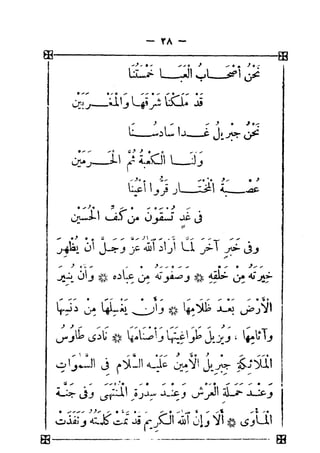 — ٢٨ —
نَحْنُ أَصْحَابُ الْعَبَا خَمْسَتُنَا
قَدْ مَلَكْنَا شَرْقَهَا وَالْمَغْرِبَيْنِ
نَحْنُ جِبْرِيلُ غَدَا سَادِسُنَا
وَلَنَا الْكَعْبَةُ ثُمَّ الْحَرَمَيْنِ
عُصْبَةُ الْمُخْتَارِ قَرُّوا أَعْيُنًا
فِي غَدٍ تُسْقَوْنَ مِنْ كَفِّ الْحُسَيْنِ
وَفِي خَبَرٍ آخَرَ لَمَّا أَرَادَ اللهُ عَزَّ وَجَلَّ أَنْ يُظْهِرَ
خِيرَتَهُ مِنْ خَلْقِهِ * وَصَفْوَتَهُ مِنْ عِبَادِهِ * وَأَنْ يُنِيرَ
الْأَرْضَ بَعْدَ ظَلَامِهَا * وَأَنْ يَغْسِلَهَا مِنْ دَنَسِهَا
وَآثَامِهَا ، وَيُزِيلَ طَوَاغِيتَهَا وَأَصْنَامَهَا * نَادَى طَاوُسُ
الْمَلَائِكَةِ جِبْرِيلُ الْأَمِينُ عَلَيْهِ السَّلَامُ فِي السَّمٰوَاتِ
وَعِنْدَ حَمَلَةِ الْعَرْشِ وَعِنْدَ سِدْرَةِ الْمُنْتَهَى وَفِي جَنَّةِ
الْمَأْوَى * أَلَا وَإِنَّ اللهَ الْكَرِيمَ قَدْ تَمَّتْ كَلِمَتُهُ وَنَفَذَتْ